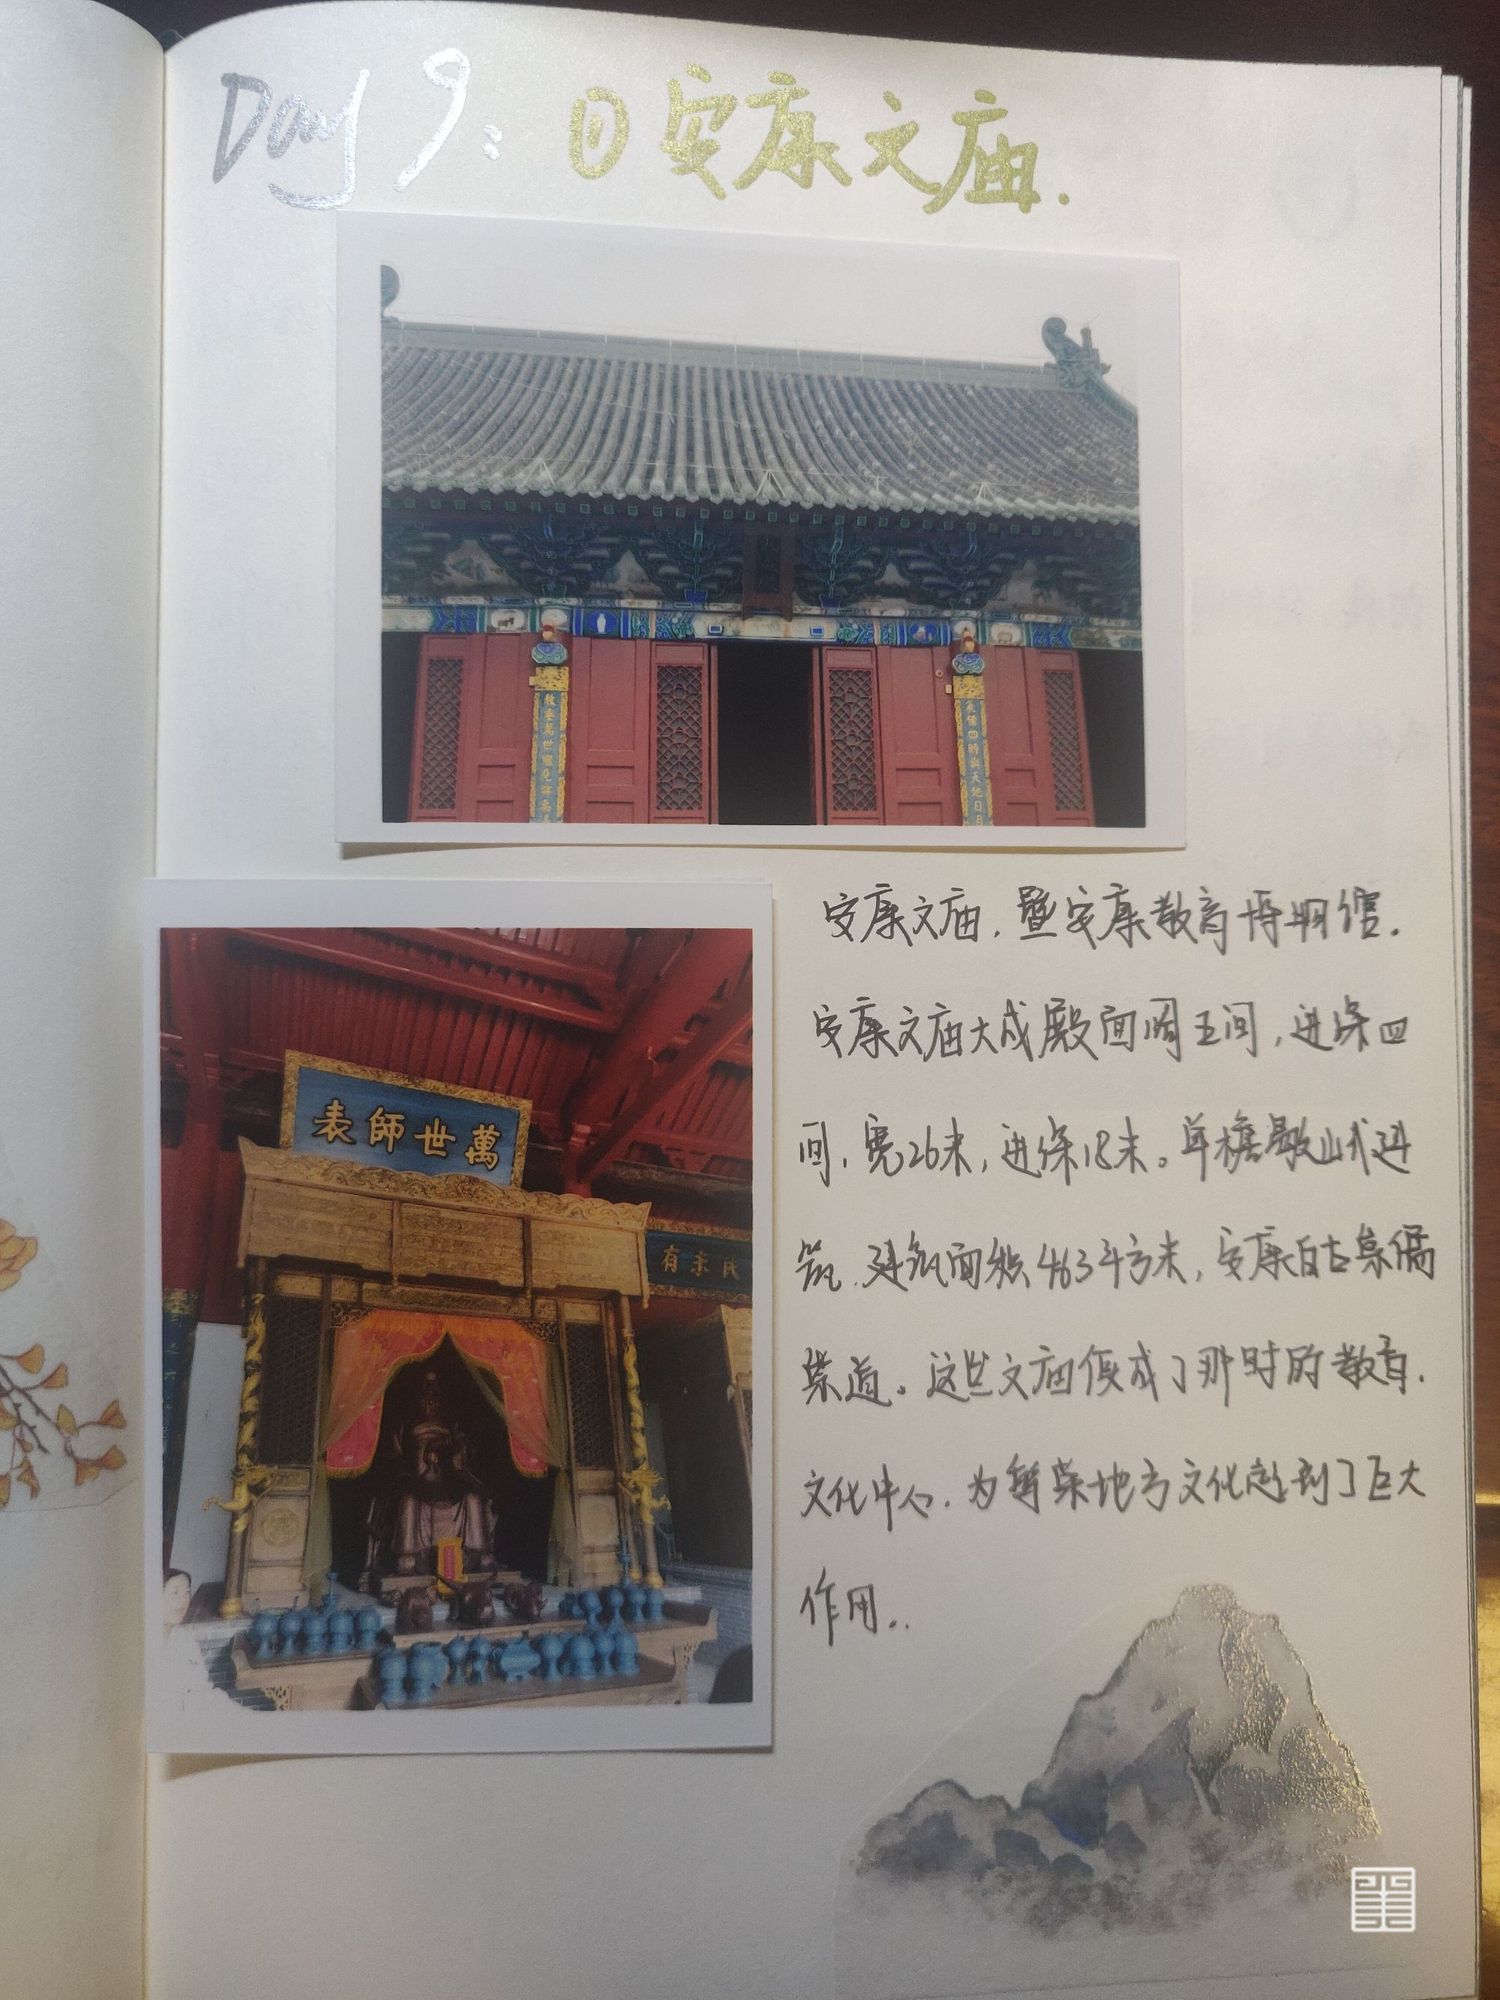 Day 9: ①安康文庙.
教垂萬世繼堯舜禹
氣備四時與天地日月
萬世師表
有未民
安康文庙，暨安康教育博物馆.
安康文庙大成殿面阔五间，进深四
间，宽26米，进深18米。单檐歇山式建
筑.建筑面积463平方米，安康自古崇儒
崇道。这些文庙便成了那时的教育.
文化中心.为繁荣地方文化起到了巨大
作用..